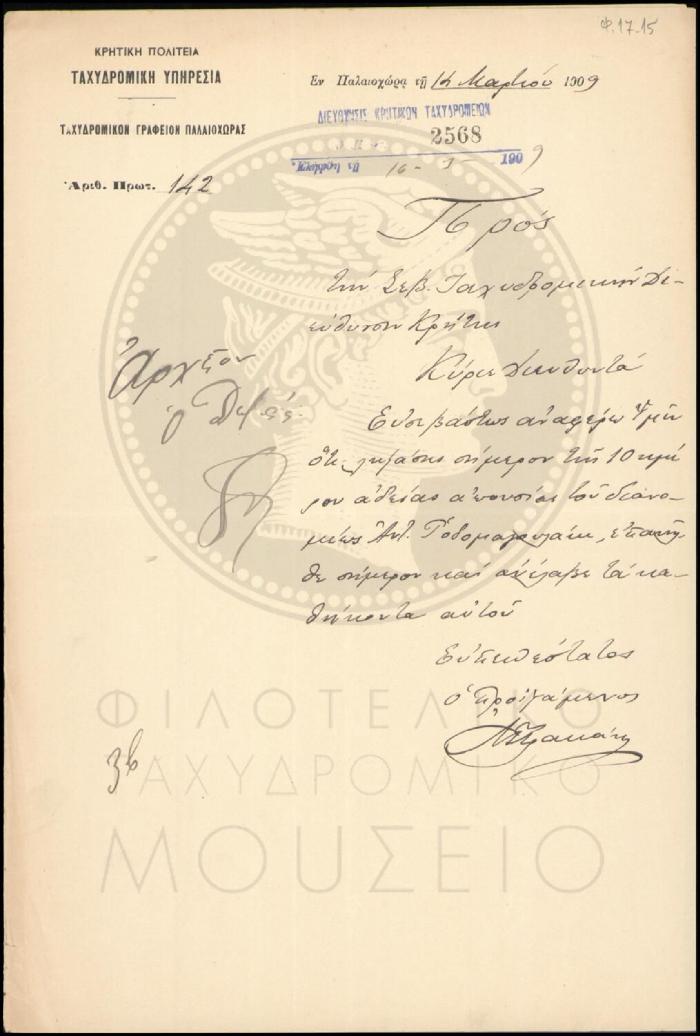 Φ.17.15
ΚΡΗΤΙΚΗ ΠΟΛΙΤΕΙΑ
ΤΑΧΥΔΡΟΜΙΚΗ ΥΠΗΡΕΣΙΑ
ΤΑΧΥΔΡΟΜΙΚΟΝ ΓΡΑΦΕΙΟΝ ΠΑΛΑΙΟΧΩΡΑΣ
Ἀριθ. Πρωτ. 142
Εν Παλαιοχώρᾳ τῇ 14 Μαρτίου 1909
ΔΙΕΥΘΥΝΣΙΣ ΚΡΗΤΙΚΩΝ ΤΑΧΥΔΡΟΜΕΙΩΝ
2568
16 - 3 - 1909
Πρός
τὴν Σεβ. Ταχυδρομικὴν Δι-
εύθυνσιν Κρήτης
Κύριε Διευθυντά
Εὐσεβάστως ἀναφέρω ὑμῖν
ὅτι ληξάσης σήμερον τῆς 10 ημέ
ρου ἀδείας ἀπουσίας τοῦ διανο-
μέως Ἀντ. επανῆλ
θε σήμερον καὶ ἀνέλαβε τὰ κα-
θήκοντα αὐτοῦ
Εὐπειθέστατος
ὁ προϊστάμενος
Ἀρχεῖον
ΦΙΛΟΤΕΛΙΚΟ
ΤΑΧΥΔΡΟΜΙΚΟ
ΜΟΥΣΕΙΟ